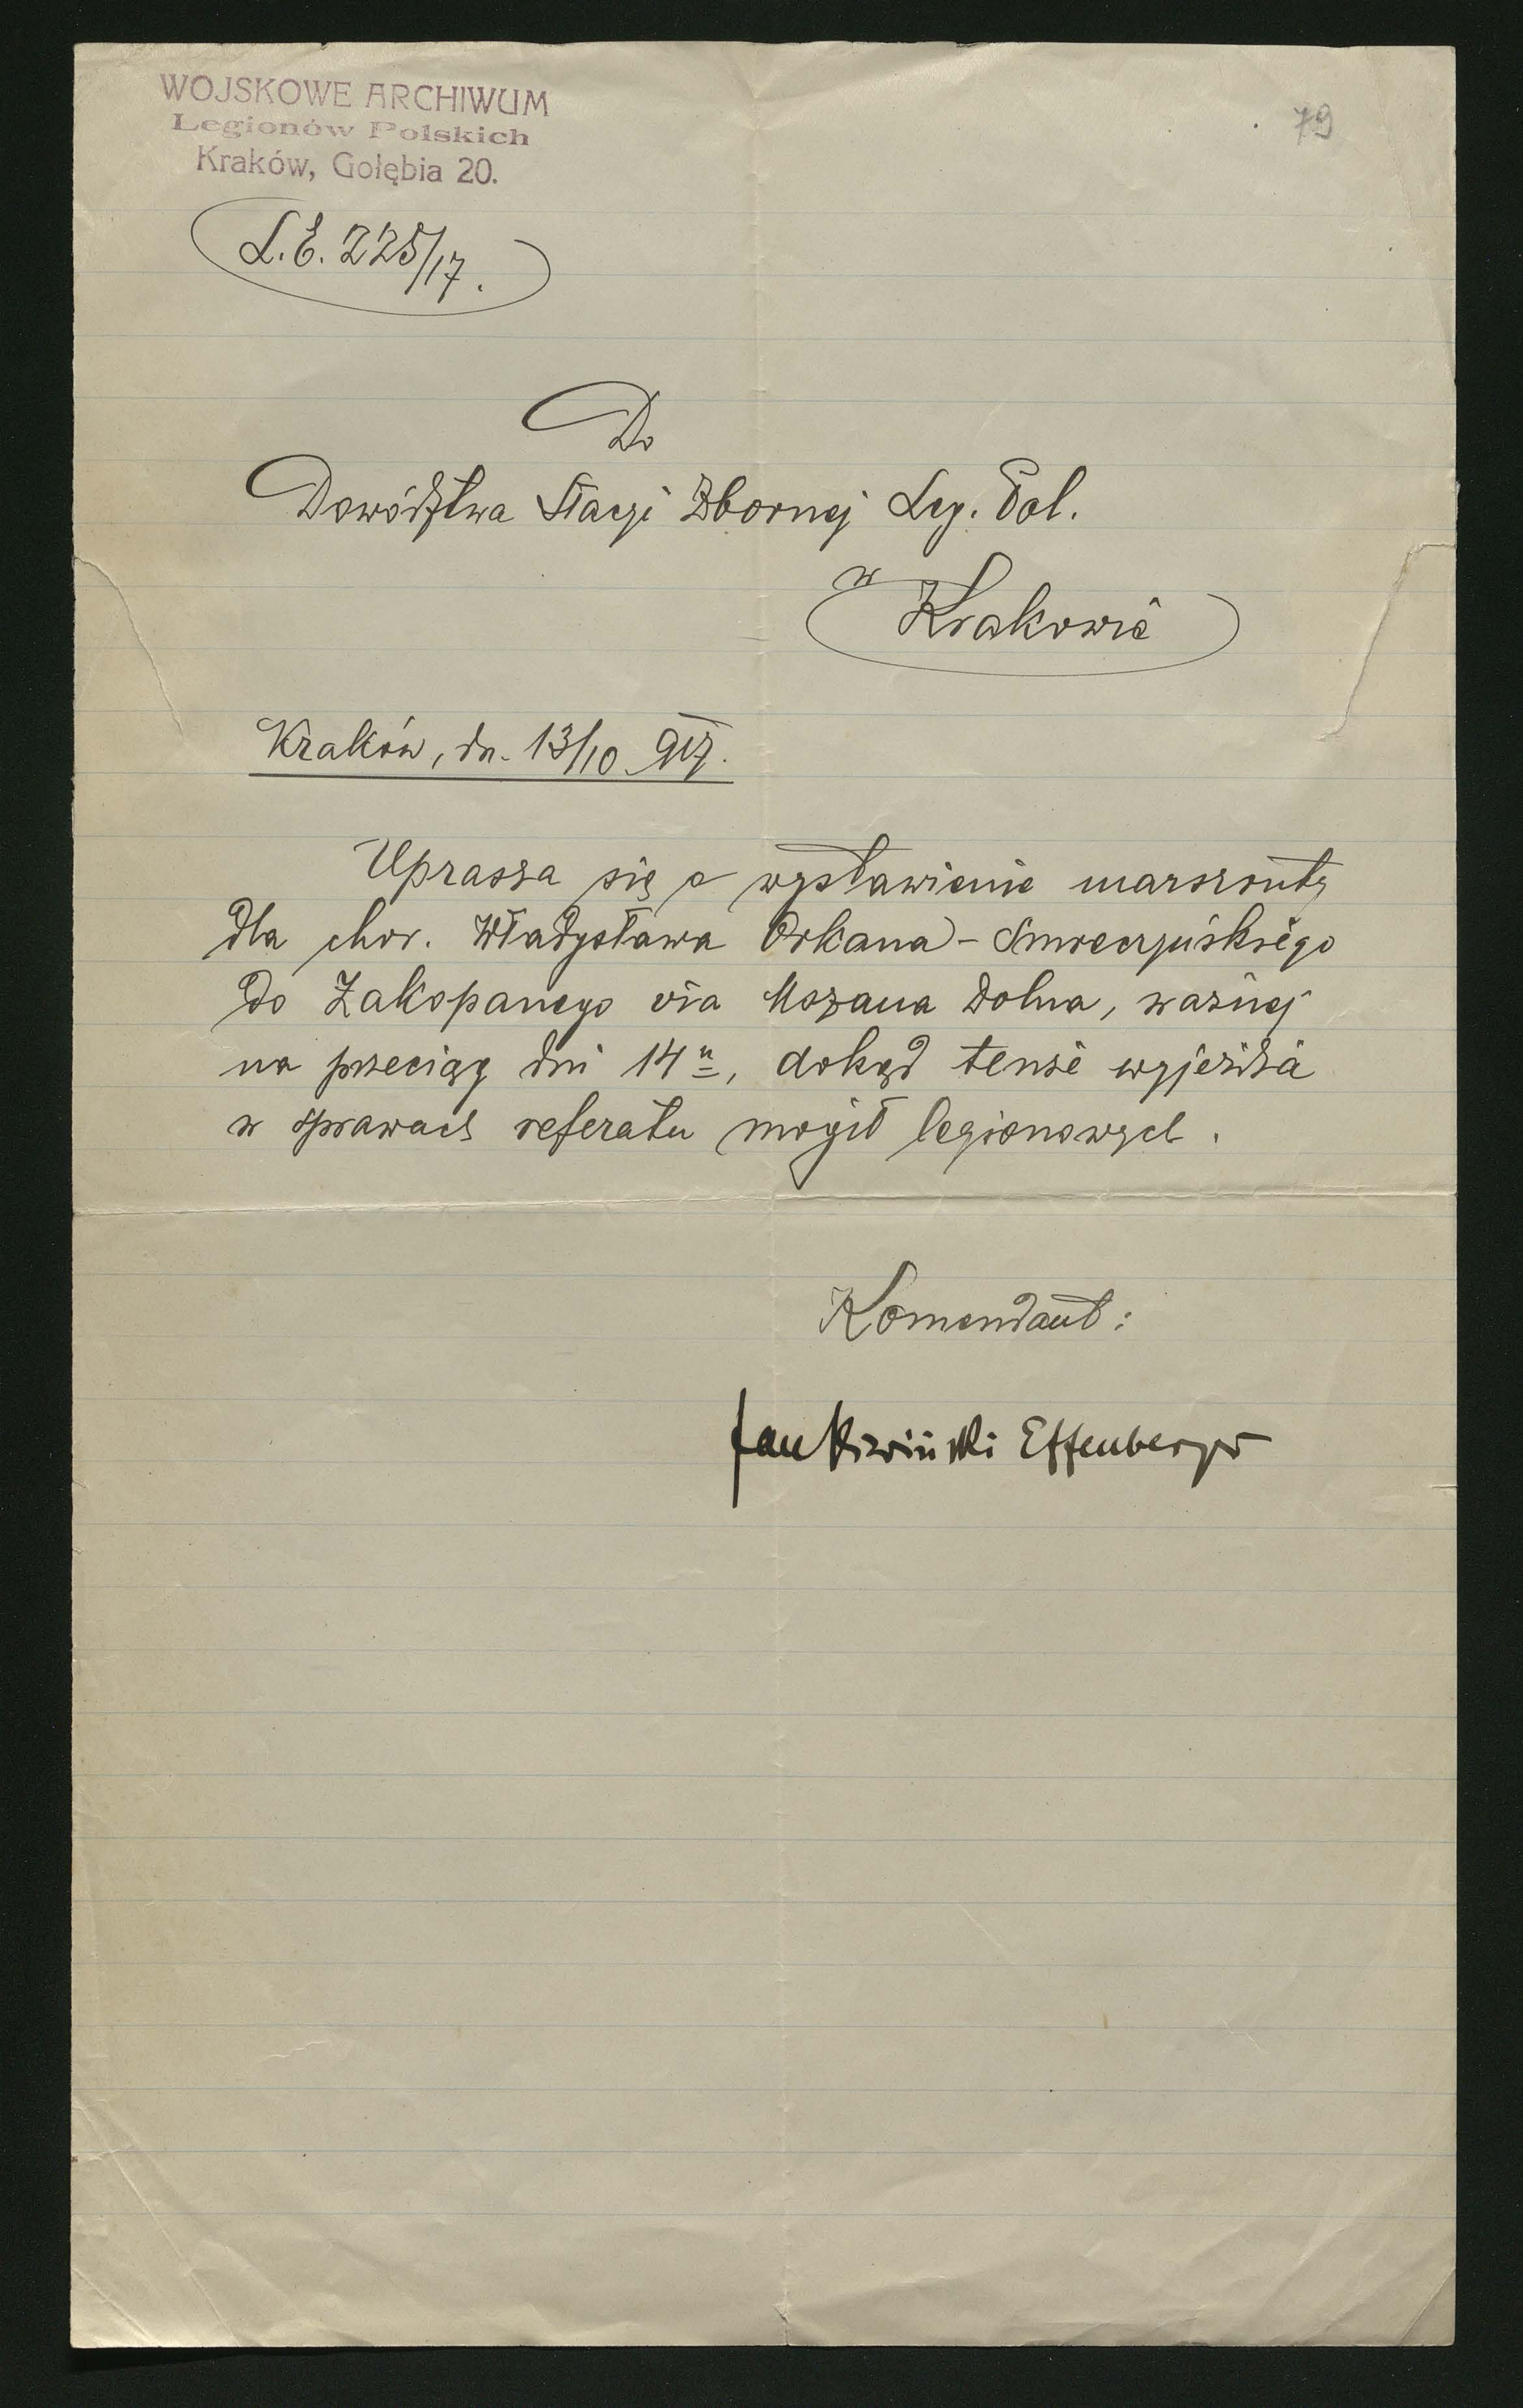 WOJSKOWE ARCHIWUM
Legionów Polskich
Kraków, Gołębia 20.
79
L.E. 225/17.
Do
Dowództwa Stacyi Zbornej Leg. Pol.
w
Krakowie
Kraków, dn. 13/10 917.
Uprasza się o wystawienie marszruty
dla chor. Władysława Orkana-Smreczyńskiego
do Zakopanego via Mszana Dolna, ważnej
na przeciąg dni 14 u, dokąd tenże wyjeżdża
w sprawach referatu mogił legionowych.
Komendant:
Effenberger